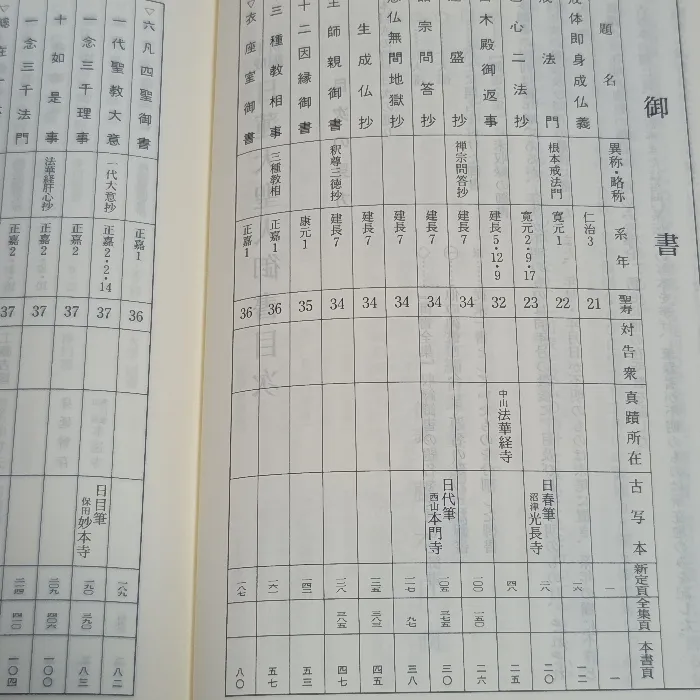 御書
題名 異称・略称 系年 聖寿 対告衆 真蹟所在 古写本 新定頁 全集頁 本書頁
体即身成仏義 仁治3 21 一 一
法門 根本戒法門 寛元1 22 一六 一二
心二法抄 寛元2・9・17 23 日春筆 沼津光長寺 二八 二〇
木殿御返事 建長5・12・9 32 中山法華経寺 四八 二五
盛抄 禅宗問答抄 建長7 34 一〇〇 一五〇 二六
宗問答抄 建長7 34 日代筆 西山本門寺 一〇五 三七五 三〇
仏無間地獄抄 建長7 34 一一七 九七 三八
生成仏抄 建長7 34 一三五 三八三 四五
師親御書 釈尊三徳抄 建長7 34 一三八 三八五 四七
十二因縁御書 康元1 35 一四二 五三
三種教相事 三種教相 正嘉1 36 一六一 五七
▽衣座室御書 正嘉1 36 一八七 八〇
▽六凡四聖御書 正嘉1 36 一八九 八二
一代聖教大意 一代大意抄 正嘉2・2・14 37 日目筆 保田妙本寺 一九〇 三九〇 八三
一念三千理事 正嘉2 37 二〇九 四〇六 一〇〇
十如是事 法華経肝心抄 正嘉2 37 二一四 四一〇 一〇四
一念三千法門 正嘉2 37